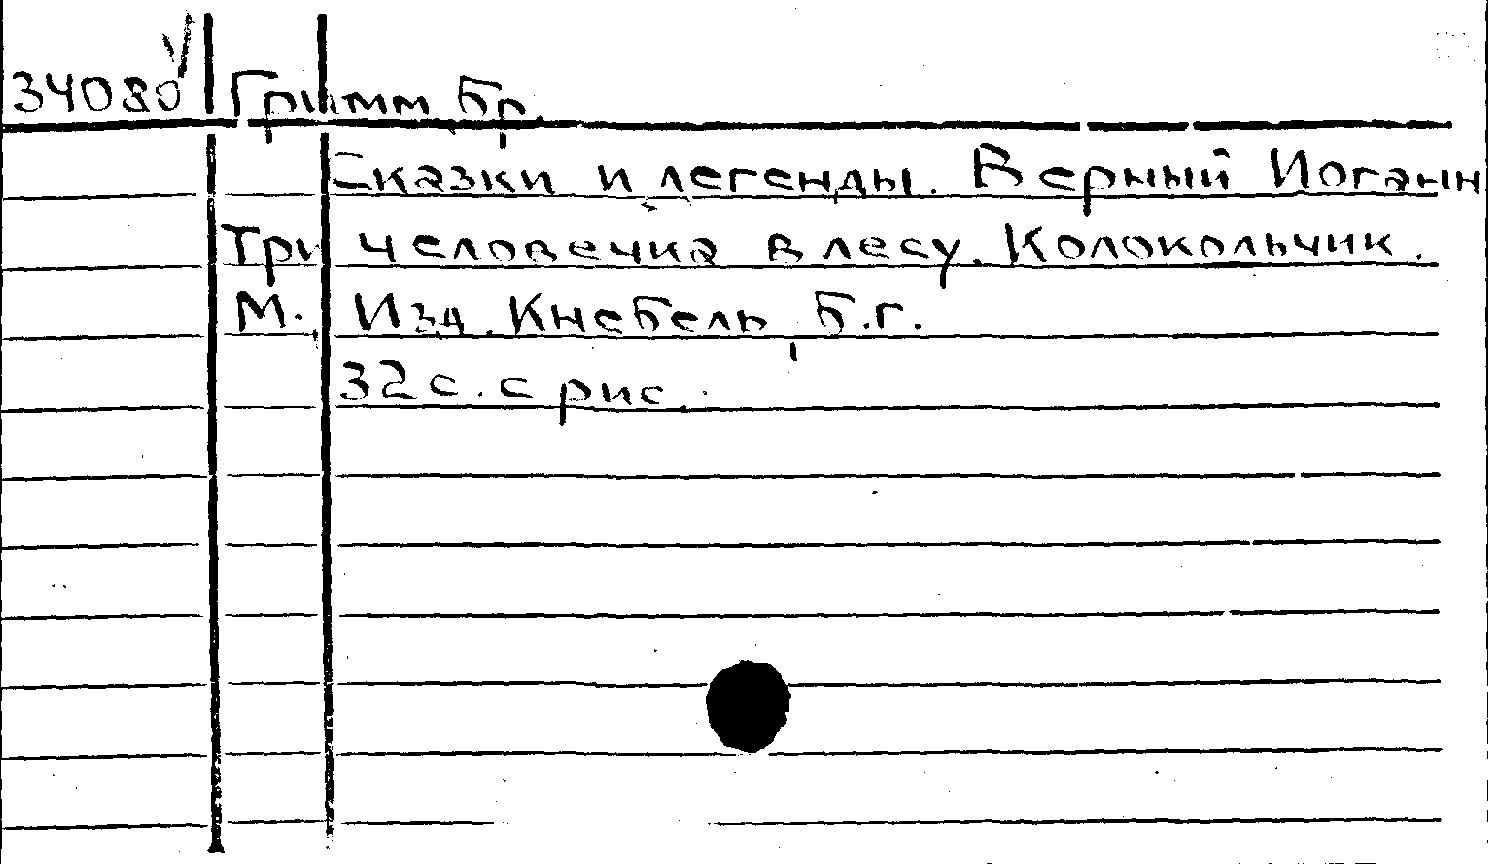 34080 Гримм Бр.
Сказки и легенды. Верный Иоганн
Три человечка в лесу. Колокольчик.
М. Изд. Кнебель, Б.г.
32 с. с рис.